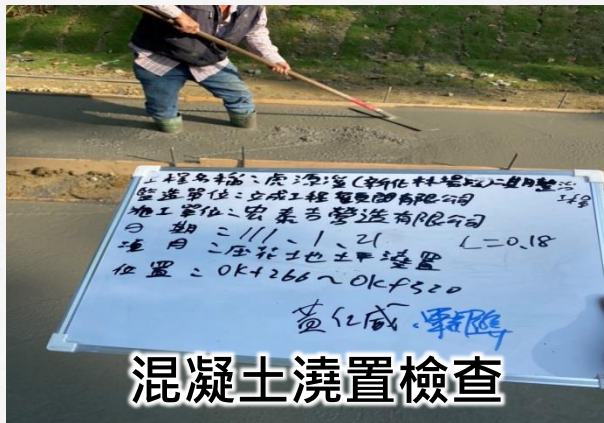 工程名稱：虎源溪(新化林場段)二期整治工程
監造單位：立成工程顧問有限公司
施工單位：宏泰吉營造有限公司
日期：111、1、21 L=0.18
項目：壓花地坪澆置
位置：0K+266～0K+320
黃仁威
混凝土澆置檢查